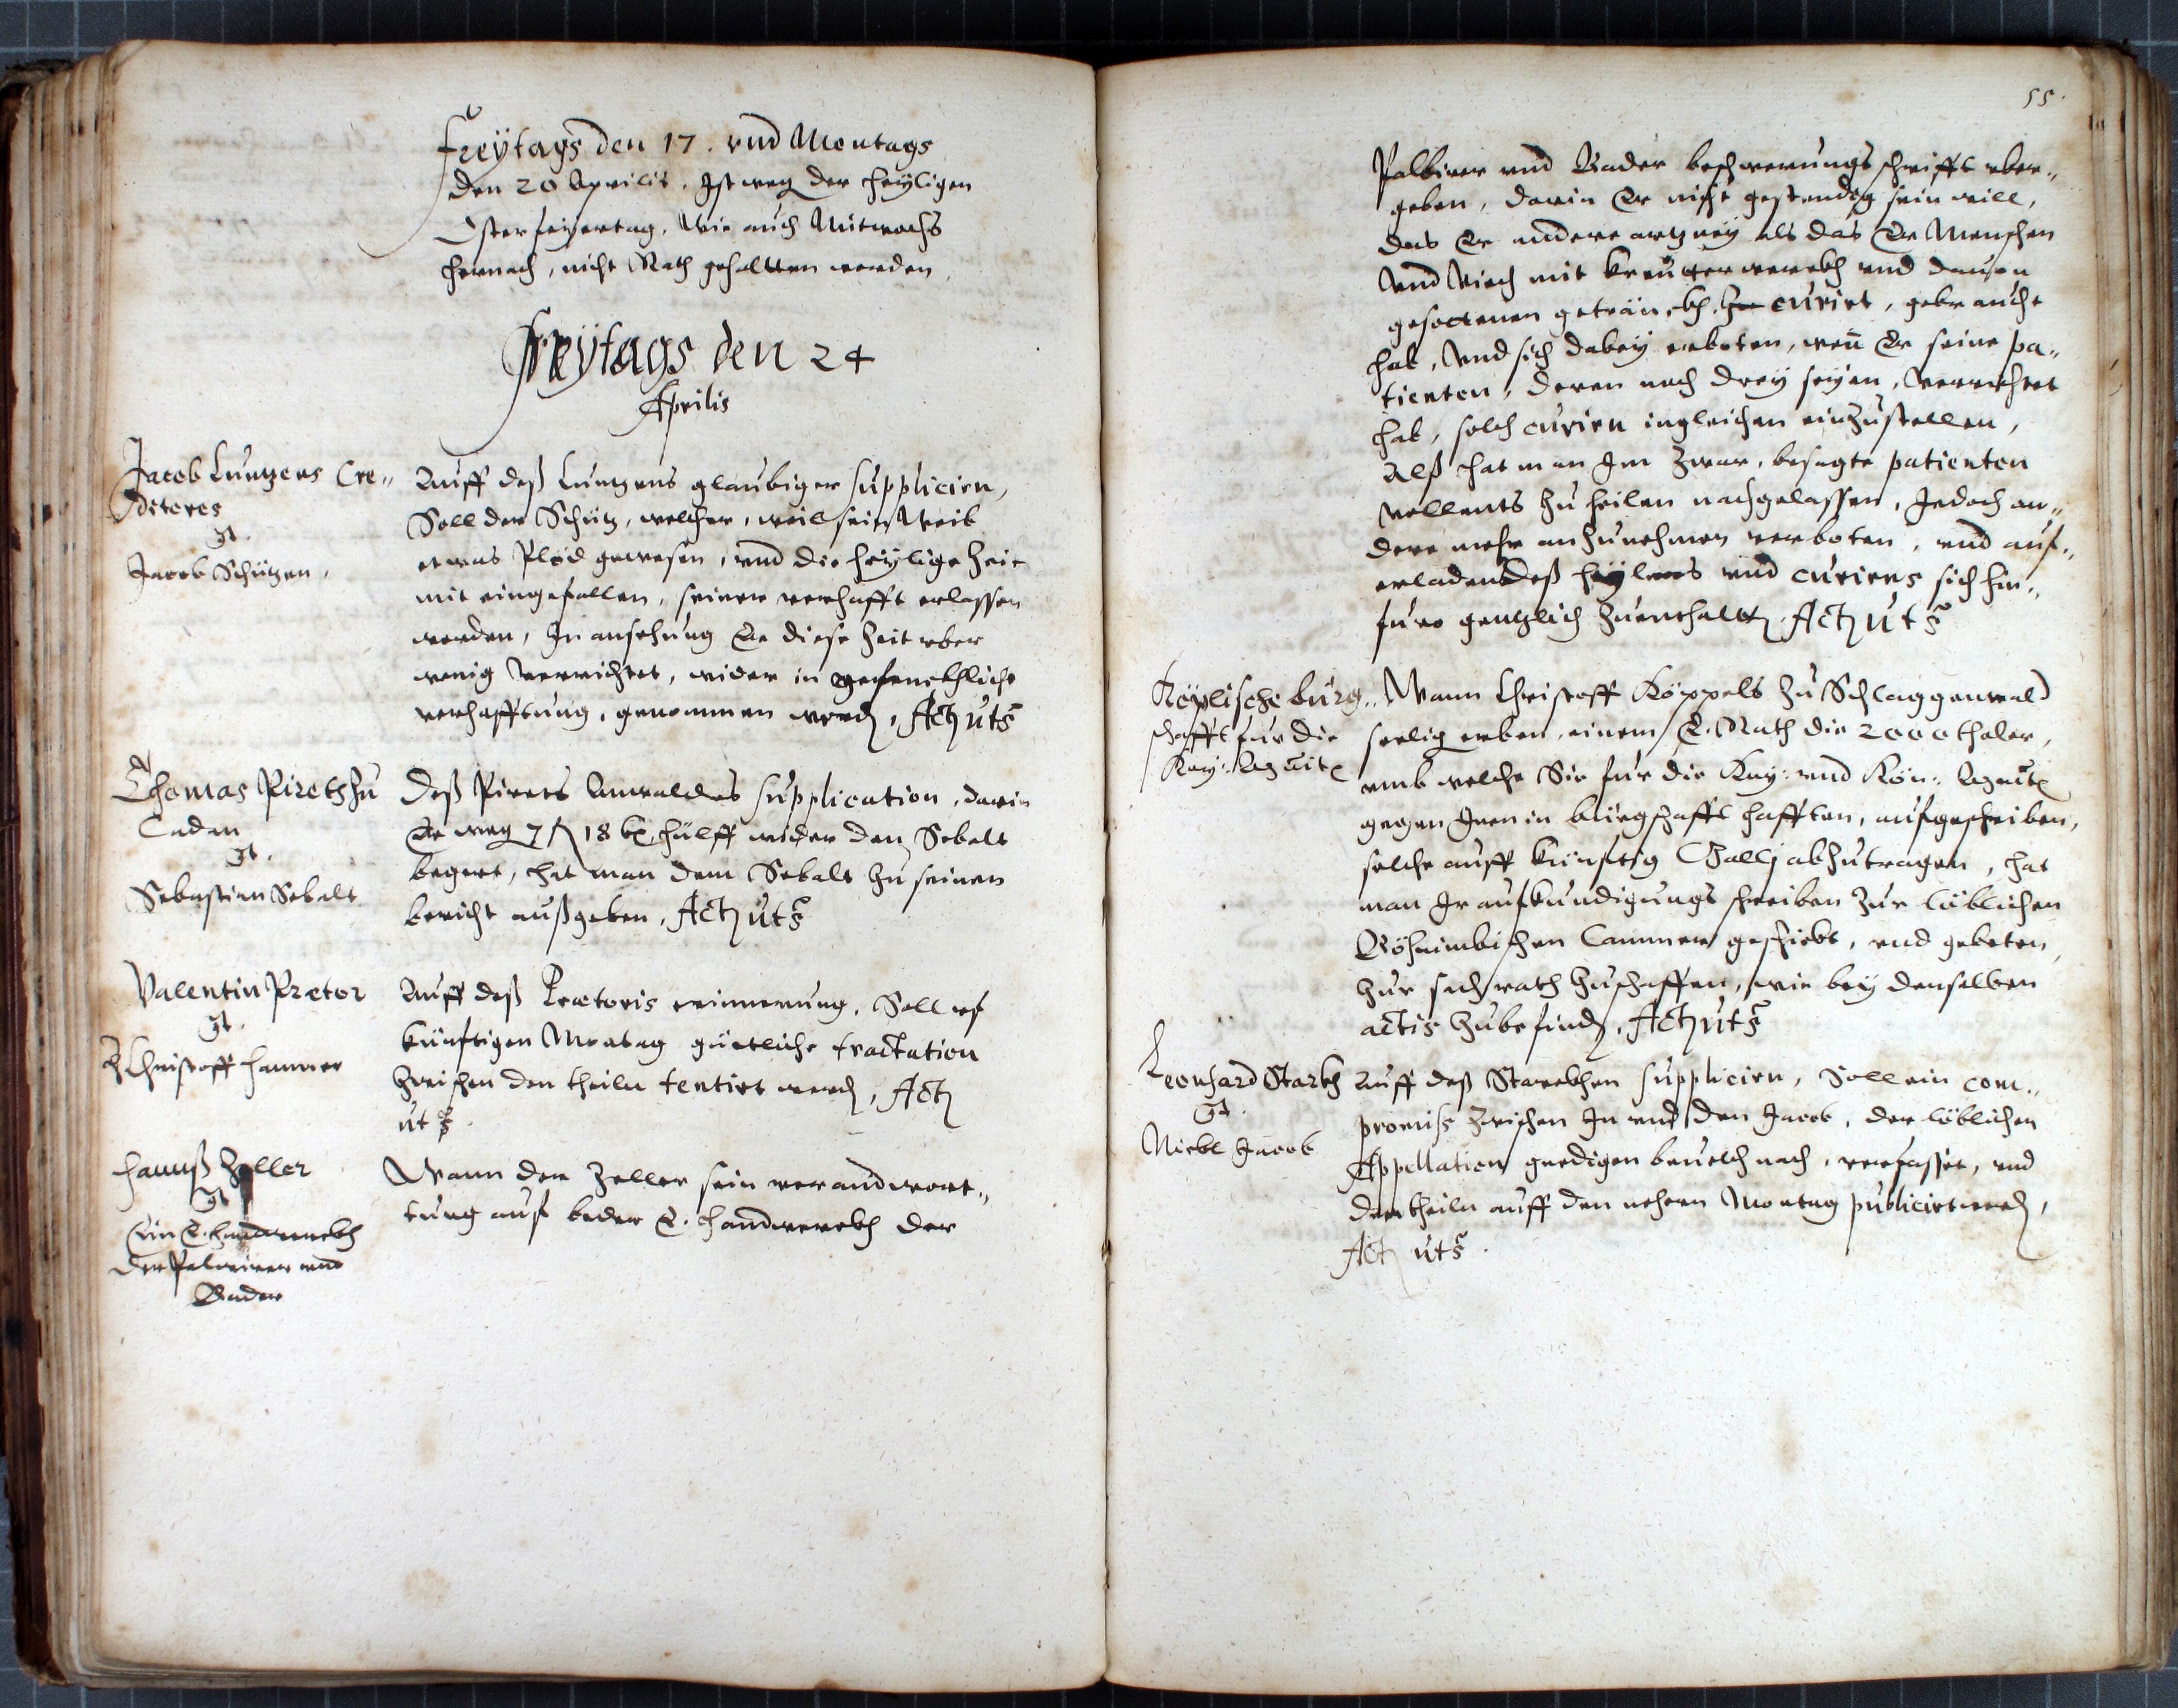 Freytags den 17. vnd Montags
den 20 Aprilis, Ist weg der heyligen
Osterfeyertag, wie auch Mitwochs
hernach, nicht Rath gehaltten worden
Freytags den 24
Aprilis
Jacob Luntzens Cre„
ditores
Jacob Schützen,
Auff deß Luntzens glaubiger supplicirn,
Soll der Schütz, welcher, weil sein Weib
etwas Plöd gewesen, vnd die heylige Zeit
mit eingefallen, seiner verhafft erlassen
worden, In ansehung Er diese Zeit vber
wenig verrichtet, wider in gefencklliche
verhafftung, genommen werd, Act uts
Thomas Pirets Zu
Cadan
Sebastian Sebalt
Deß Pirets Anwaldes supplication, darin
Er weg 7 f 18 kr hülff wider den Sebalt
begert, hat man dem Sebalt zu seinen
bericht außgeben, Act uts
Valentin Prætor
Christoff Hammer
Auff deß Prætoris erinnerung, Soll vf
künfftigen Montag güetliche tractation
Zwischen den theiln tentirt werd, Act
ut s.
Hannß Zeller
Ein E. handtwerckh
der Palwirer vnd
Bader
Wann der Zeller sein verandtwort„
tung auf beder E. Handwerckh der
55.
Palbirer vnd Bader beschwerungs schrifft vber„
geben, darin Er nicht gestendig sein will,
das Er andere artzney als das Er Menschen
vnd Viech mit kreutterwerckh vnd dauon
gesottenen getränckh, curirt, gebraucht
hab, vnd sich dabey erboten, wen Er seine pa„
tienten, deren noch drey seyen, verrichtet
hab, solch curirn ingleichen einzustellen,
Alß hat man Im zwar, besagte patienten
vollents zu heilen nachgelassen, Jedoch an„
dere mehr anzunehmen verboten, vnd auf„
erladen deß heylens vnd curirens sich hin„
furo gentzlich Zuenthaltt. Act ut s
Köplische burg„
schafft fur die
Kay:
Wann Christoff Köppels Zu Schlaggenwald
seelig erben, einem E. Rath die 2000 thaler,
vmb welche Sie fur die Kay: vnd Kön:
gegen Inen in bürgschafft hafften, aufgeschriben,
solche auff künfftig Galli abzutragen, hat
man Ir aufkündigungs schreiben Zur löblichen
Böhaimbischen Cammer geschickt, vnd gebeten,
Zur sach rath zuschaffen, wie bey denselben
actis Zubefind, Act uts
Leonhard Starckh
Nickl Jacob
Auff deß Starckhen supplicirn, soll ein com„
promiss Zwischen Im vnd den Jacob, der löblichen
Appellation gnedigen beuelch nach, verfasset, vnd
den theiln auff den nehern Montag publicirt werd,
Act uts.